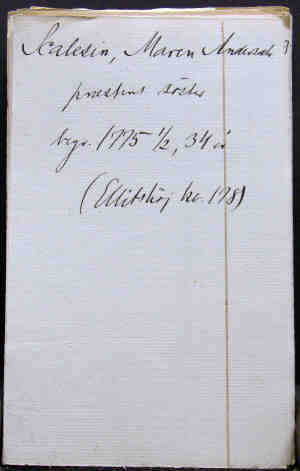 Scalesin, Maren Andersdr
præstens söster
begr. 1775 1/2, 34 år
(Ellitshöj kb. 178)